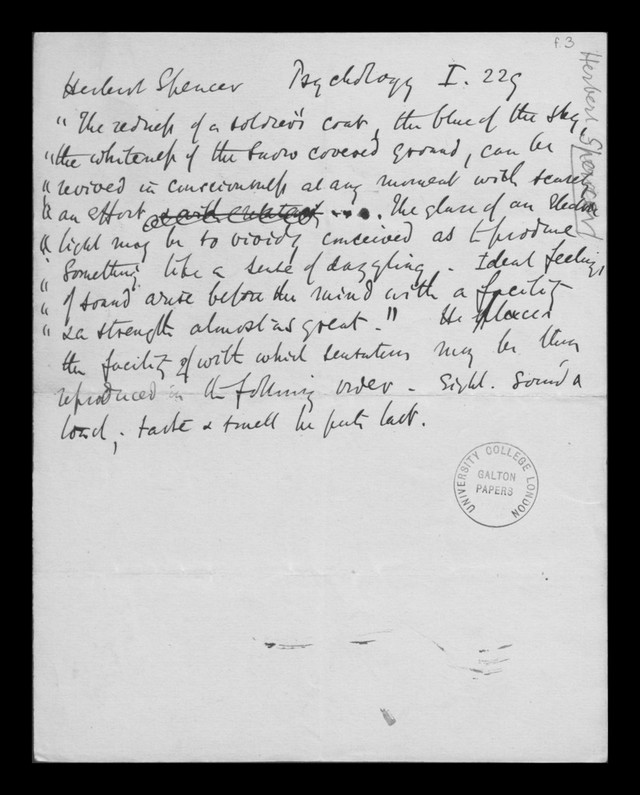 f.3
Herbert Spencer
Herbert Spencer Psychology I. 229
" The redness of a soldier's coat, the blue of the sky,
" the whiteness of the snow covered ground, can be
" revived in consciousness at any moment with scarcely
" an effort .... The glare of an Electric
" light may be so vividly conceived as to produce
" something like a sense of dazzling. Ideal feelings
" of sound arise before the mind with a facility
" & a strength almost as great." He places
the facility of with which sensations may be thus
reproduced in the following order - Sight. Sound &
touch; taste & smell he puts last.
UNIVERSITY COLLEGE LONDON
GALTON
PAPERS